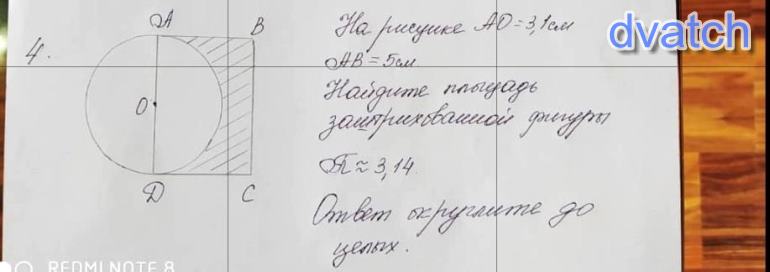 4.
A
B
O
D
C
На рисунке АО = 3,1 см
АВ = 5 см
Найдите площадь
заштрихованной фигуры
π ≈ 3,14.
Ответ округлите до
целых.
dvatch
REDMI NOTE 8